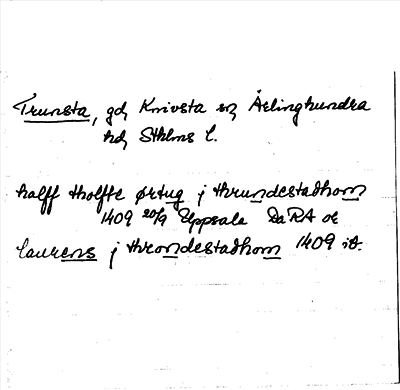 Trunsta, gd, Knivsta sn, Ärlinghundra
hd, Sthlms l.
halff tholffte ørtug j thrundestadhom
1409 20/9 Uppsala DaRA or
laurens j throndestadhom 1409 ib.